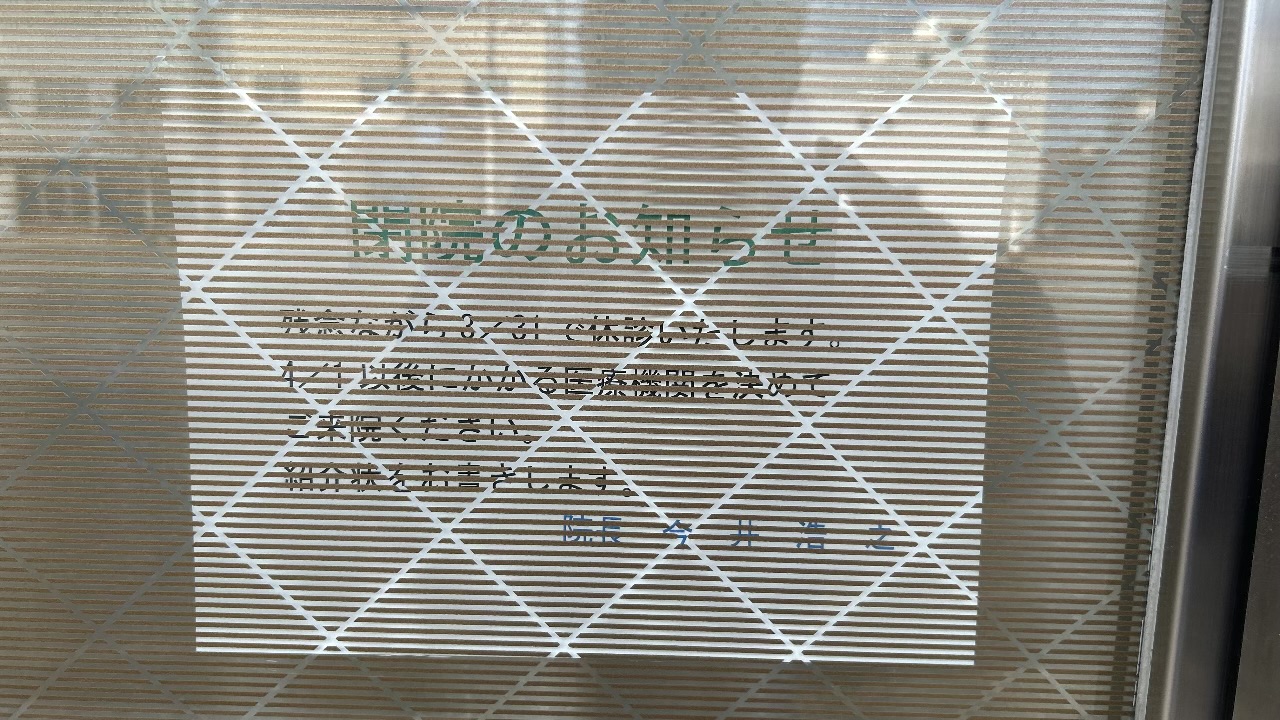 閉院のお知らせ
残念ながら3/31で休診いたします。
4/1以後にかかる医療機関を決めて
ご来院ください。
紹介状をお書きします。
院長 今井浩之